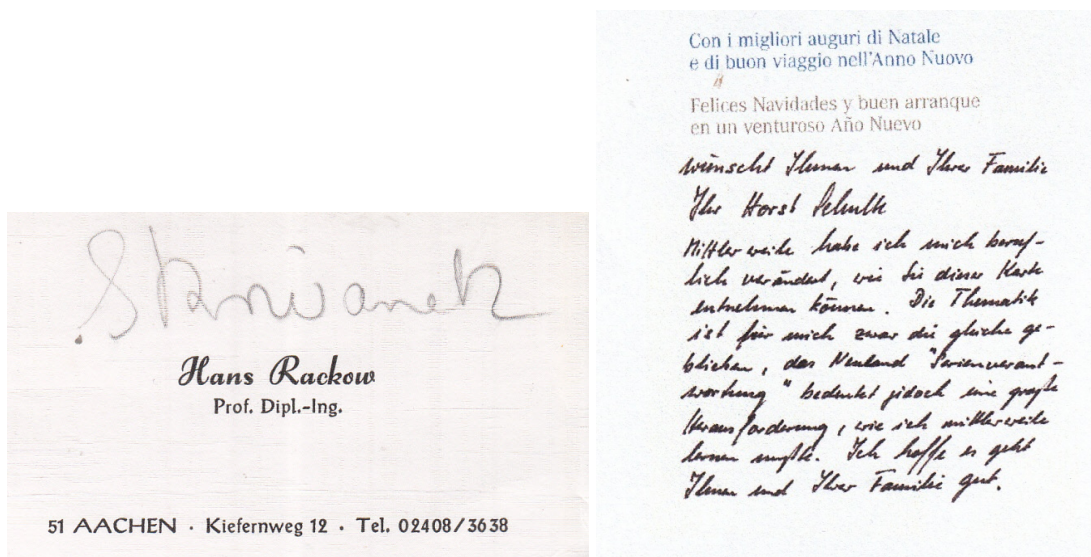 Skriwanek
Hans Rackow
Prof. Dipl.-Ing.
51 AACHEN · Kiefernweg 12 · Tel. 02408/3638
Con i migliori auguri di Natale
e di buon viaggio nell'Anno Nuovo
Felices Navidades y buen arranque
en un venturoso Año Nuevo
wünscht Ihnen und Ihrer Familie
Ihr Horst Schulte
Mittlerweile habe ich mich beruf-
lich verändert, wie Sie dieser Karte
entnehmen können. Die Thematik
ist für mich zwar die gleiche ge-
blieben, das Neuland "Serienverant-
wortung" bedeutet jedoch eine große
Herausforderung, wie ich mittlerweile
lernen mußte. Ich hoffe es geht
Ihnen und Ihrer Familie gut.